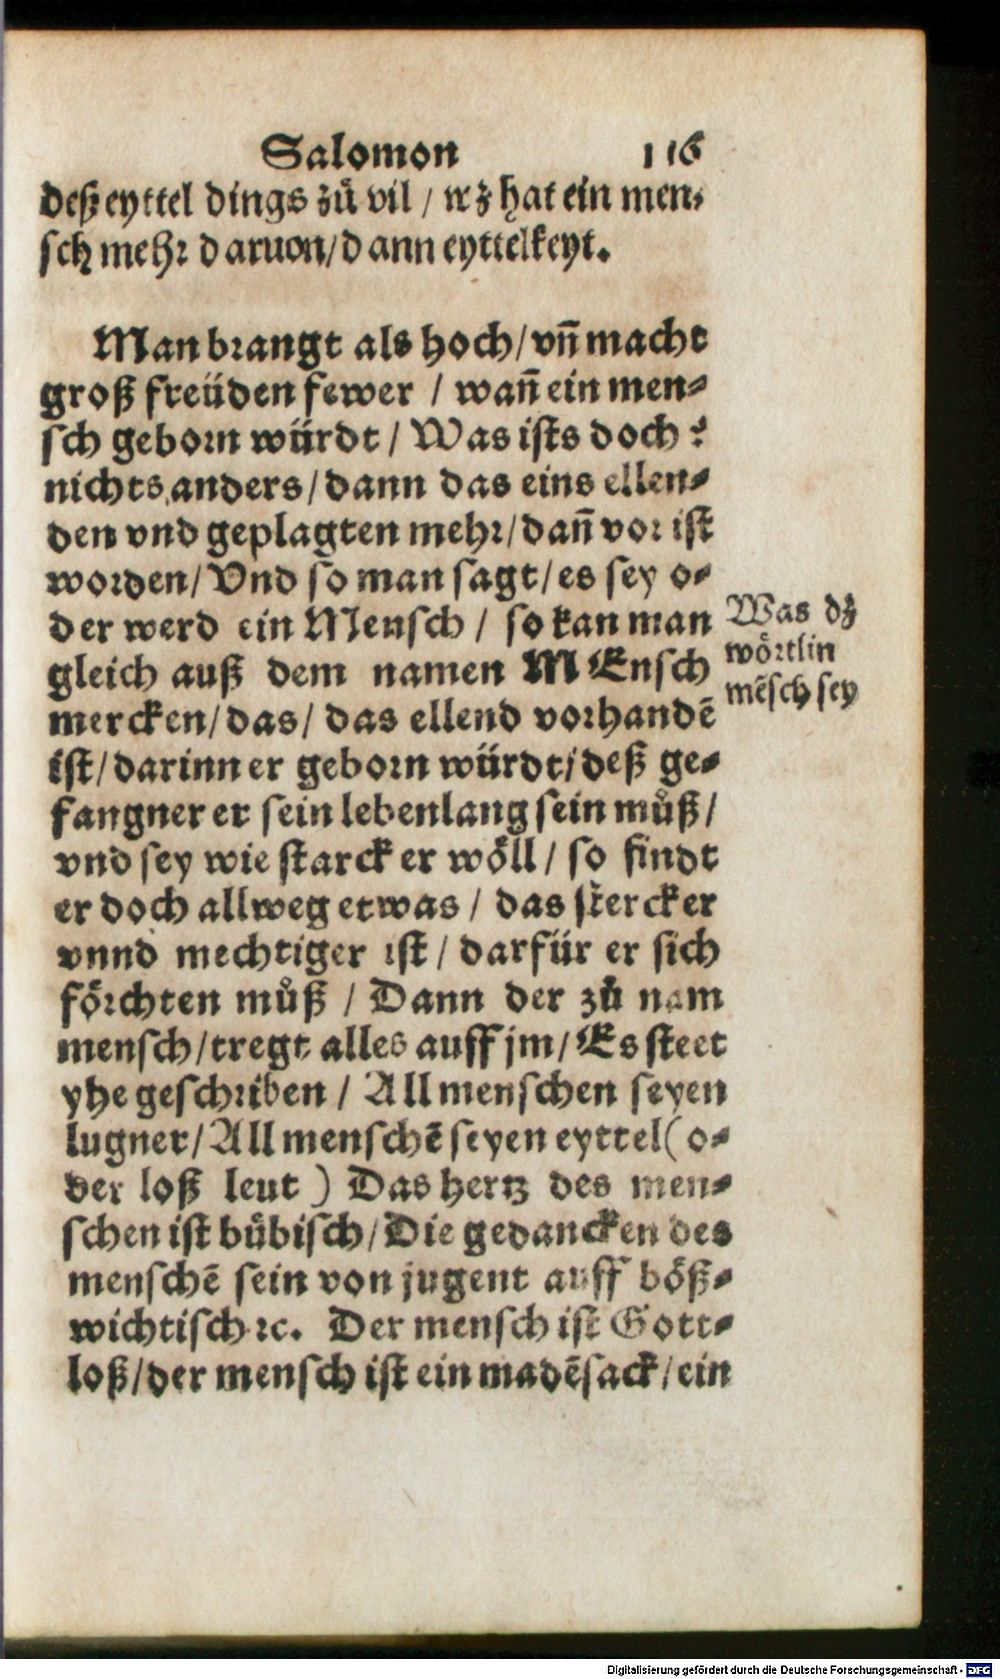 Salomon 116
deß eyttel dings zů vil / wz hat ein men-
sch mehr daruon/dann eyttelkeyt.
Man brangt als hoch/vñ macht
groß freüden fewer / wañ ein men-
sch geborn würdt / Was ists doch?
nichts anders/dann das eins ellen-
den vnd geplagten mehr/dañ vor ist
worden/Vnd so man sagt/es sey o-
der werd ein Mensch / so kan man
gleich auß dem namen MEnsch
mercken/das/das ellend vorhandẽ
ist/darinn er geborn würdt/deß ge-
fangner er sein lebenlang sein můß/
vnd sey wie starck er wöll / so findt
er doch allweg etwas / das stercker
vnnd mechtiger ist / darfür er sich
förchten můß / Dann der zů nam
mensch/tregt alles auff jm/Es steet
yhe geschriben / All menschen seyen
lugner/All menschẽ seyen eyttel(o-
der loß leut ) Das hertz des men-
schen ist bübisch/Die gedancken des
menschẽ sein von jugent auff böß-
wichtisch ꝛc. Der mensch ist Gott-
loß/der mensch ist ein madẽsack/ein
Was dz
wörtlin
mẽsch sey
Digitalisierung gefördert durch die Deutsche Forschungsgemeinschaft - DFG